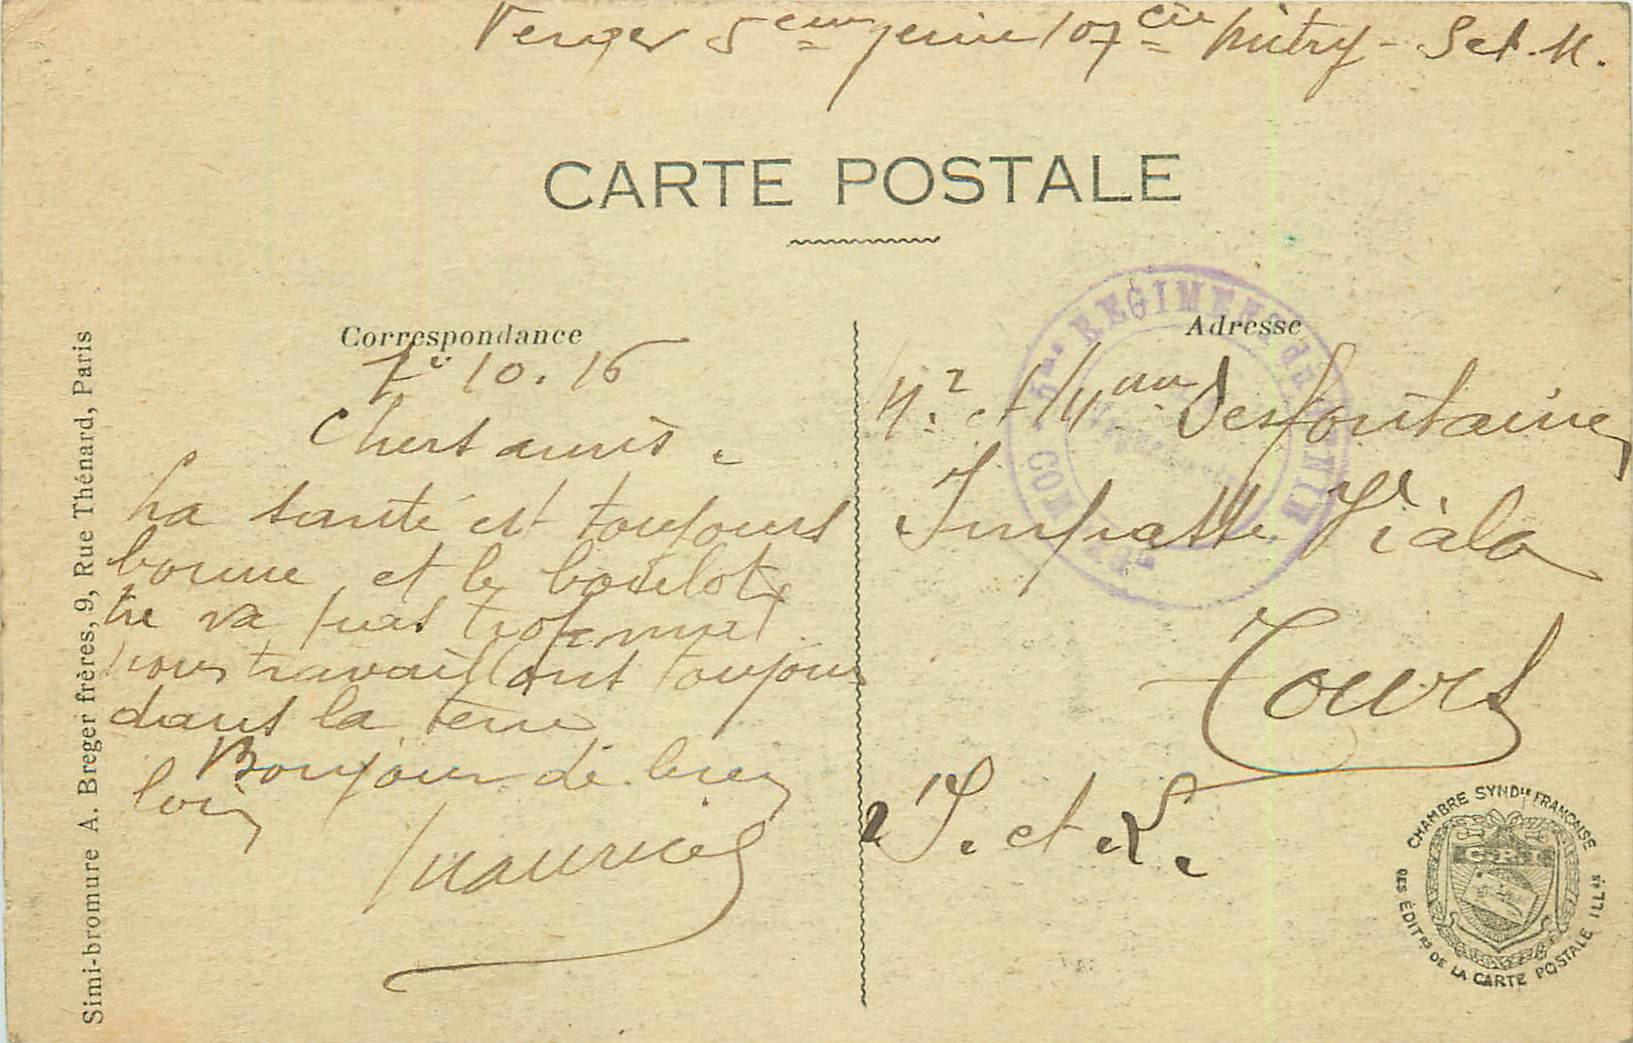 Verger 5eme genie 107 cie Mitry - Set. M.
CARTE POSTALE
Correspondance
10. 16
Chers amis.
La santé est toujours
bonne et le boulot
ne va pas trop mal
nous travaillons toujours
dans la terre
Bonjour de bien
loin
Maurice
Adresse
Mr et Mme Desfontaine
Impasse Viala
Tours
I. et L.
5me REGIMENT du GENIE
Simi-bromure A. Breger frères, 9, Rue Thénard, Paris
CHAMBRE SYNDle FRANÇAISE
DES ÉDITrs DE LA CARTE POSTALE ILLée
C.P.I